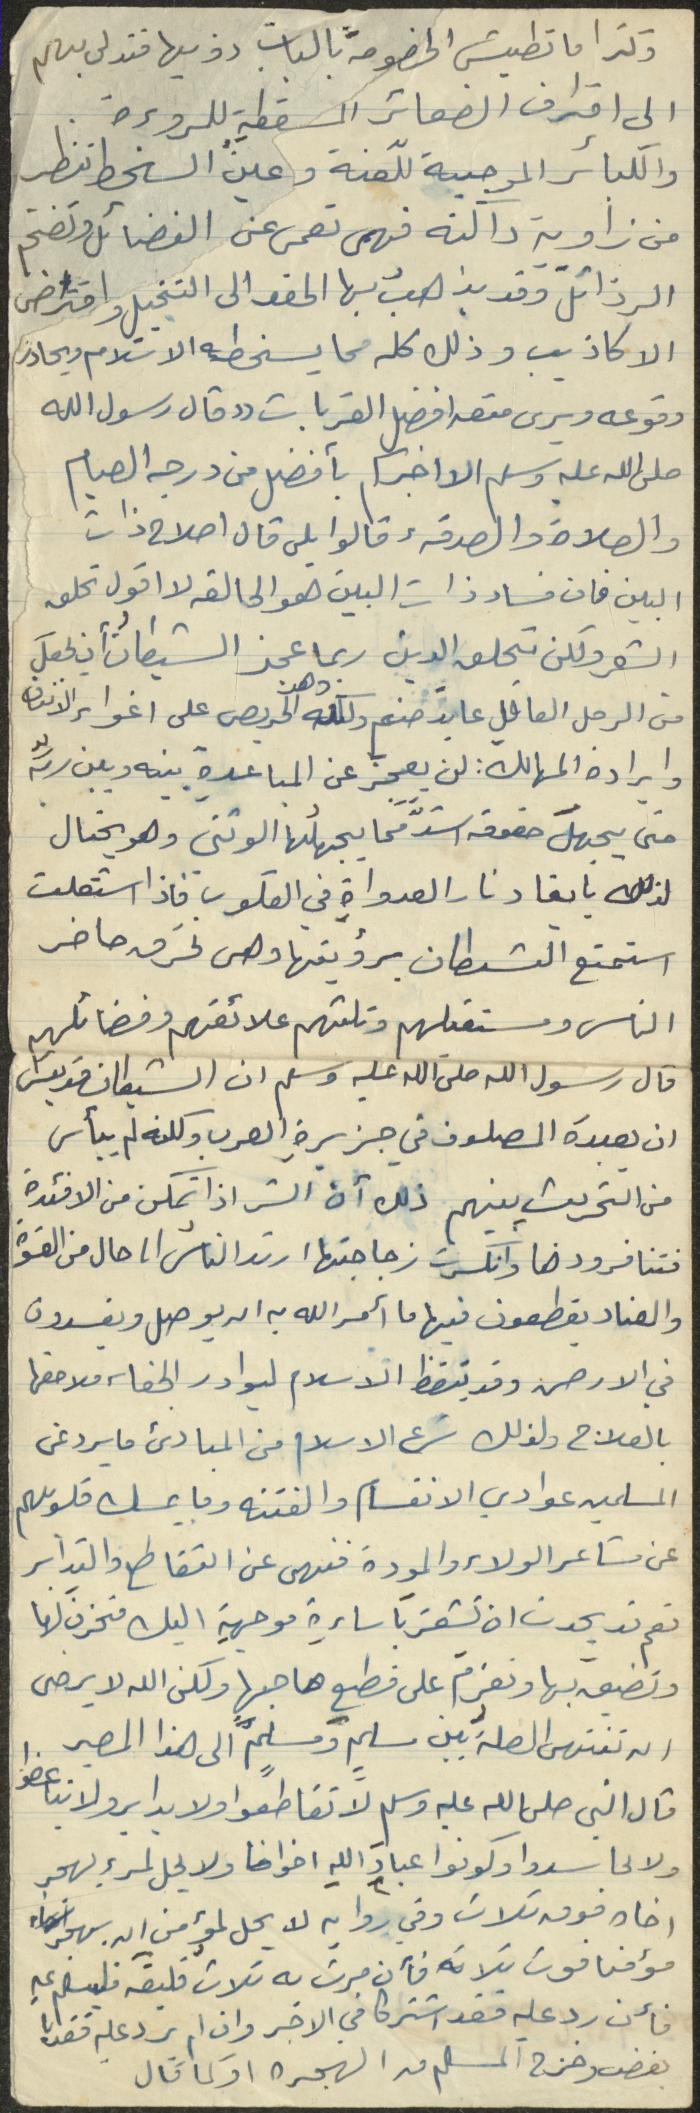 وكثيرا ما تطيش الخصومة بألباب ذويها فتدلى بهم
الى اقتراف الصغائر المسقطة للمروءة
والكبائر الموجبة للّعنة وعينُ السخط تنظر
من زاوية داكنه فهى تعمى عن الفضائل وتضخم
الرذائلَ وقد يذهب بها الحقد الى التخيل وافتراض
الاكاذيب وذلك كله مما يسخطه الاسلام ويحاذر
وقوعه ويرى منعه افضل القربات (( قال رسول الله
صلى الله عليه وسلم الا اخبركم بأفضل من درجة الصيام
والصلاة والصدقه قالوا بلى قال اصلاح ذات
البين فان فساد ذات البين هو الحالقه لا اقول تحلق
الشعر ولكن تحلق الدين ربما عجز الشيطانُ أن يجعل
من الرجل العاقل عابدَ صنم ولكنه وهو الحريص على اغواء الانسان
وايراده المهالك: لن يعجز عن المباعدة بينه وبين ربّه
حتى يجهل حقوقه اشدَّ مما يجهلُها الوثنى وهو يحتال
لذلك بايقاد نار العداوة في القلوب فاذا اشتعلت
استمتع الشيطان برؤيتها وهى تحرق حاضر
الناس ومستقبلهم وتلتهم علائقهم وفضائلهم
قال رسول الله صلى الله عليه وسلم ان الشيطان قد يئس
ان يعبدَه المصلون في جزيرةِ العرب ولكنه لم ييأس
من التحريش بينهم ذلك أن الشر اذا تمكن من الافئدة
فتنافر ودها وانكسرت زجاجتها ارتد الناسُ الى حال من القسوة
والعناد يقطعون فيها ما أمر الله به ان يوصل ويفسدون
في الارض وقد تيقظ الاسلام لبوادر الجفاء فلاحقها
بالعلاج ولذلك شرع الاسلام من المبادئ ما يرد عن
المسلمين عوادي الانقسام والفتنه وما يمسك قلوبهم
عن مشاعر الولاء والمودة فنهى عن التقاطع والتدابر
نعم قد يحدث ان تشعر باساءةٍ موجهةٍ اليك فتحزن لها
وتضيق بها وتعزم على قطع صاحبها ولكن الله لا يرضى
ان تنتهى الصلةُ بين مسلمٍ ومسلمٍ الى هذا المصير
قال النبى صلى الله عليه وسلم لا تقاطعوا ولا تدابروا ولا تباغضوا
ولا تحاسدوا وكونوا عبادَ اللهِ اخوانا ولا يحل لمرء يهجر
اخاه فوق ثلاث وفي روايه لا يحل لمؤمن ان يهجر
مؤمنا فوق ثلاثه فأن مرت به ثلاث فليلقه فليسلم عليه
فأن رد عليه فقد اشتركا في الاجر وان لم يرد عليه فقد باء
وخرج المسلم من الهجره او كما قال